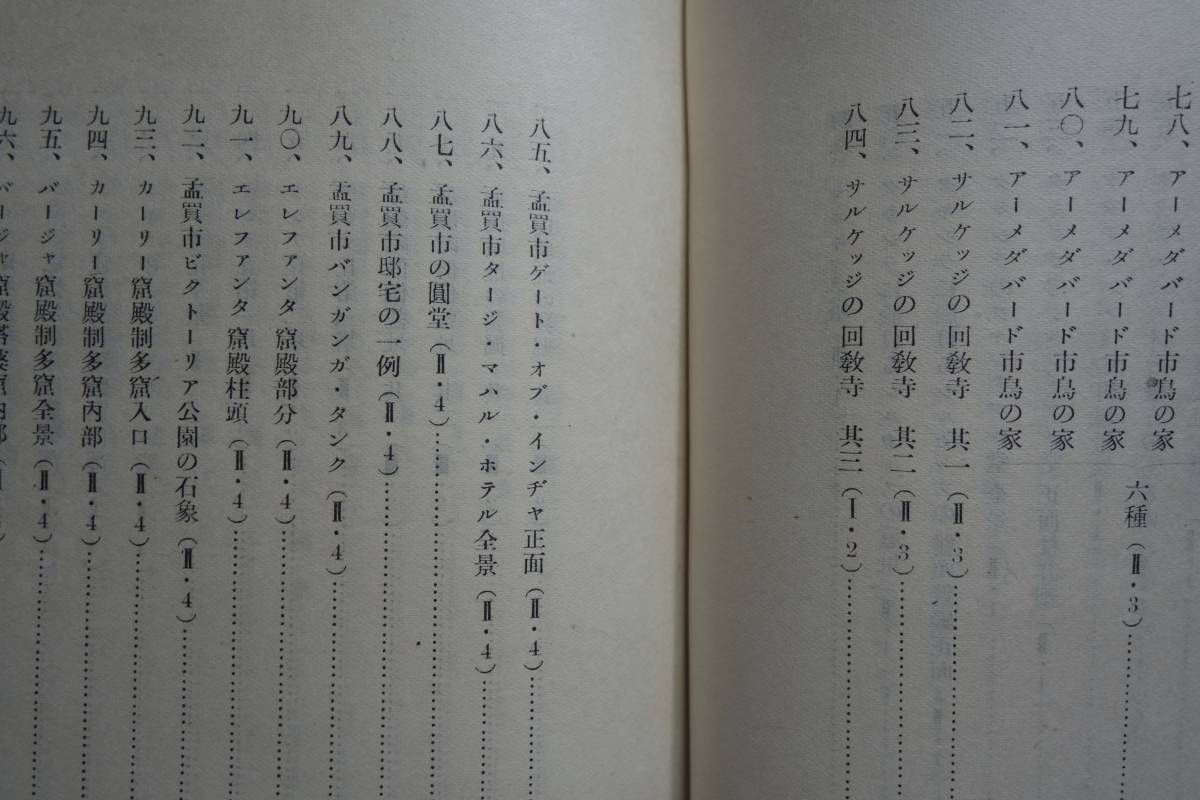 七八、アーメダバード市鳥の家
七九、アーメダバード市鳥の家
八〇、アーメダバード市鳥の家
八一、アーメダバード市鳥の家
六種(Ⅱ・3)……………
八二、サルケッジの回敎寺 其一(Ⅱ・3)……………
八三、サルケッジの回敎寺 其二(Ⅱ・3)……………
八四、サルケッジの回敎寺 其三(Ⅰ・2)……………
八五、孟買市ゲート・オブ・インヂヤ正面(Ⅱ・4)……………
八六、孟買市タージ・マハル・ホテル全景(Ⅱ・4)……………
八七、孟買市の圓堂(Ⅱ・4)……………
八八、孟買市邸宅の一例(Ⅱ・4)……………
八九、孟買市バンガンガ・タンク(Ⅱ・4)……………
九〇、エレファンタ窟殿部分(Ⅱ・4)……………
九一、エレファンタ窟殿柱頭(Ⅱ・4)……………
九二、孟買市ビクトーリア公園の石象(Ⅱ・4)……………
九三、カーリー窟殿制多窟入口(Ⅱ・4)……………
九四、カーリー窟殿制多窟內部(Ⅱ・4)……………
九五、バージャ窟殿制多窟全景(Ⅱ・4)……………
九六、バージャ窟殿